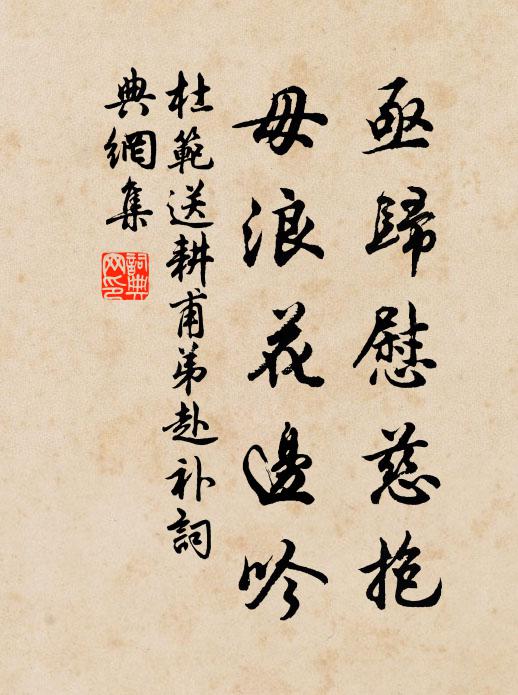 亟歸慰慈抱
毋浪花邊吟
杜範送耕甫弟赴补詞
典網集
詞典網印